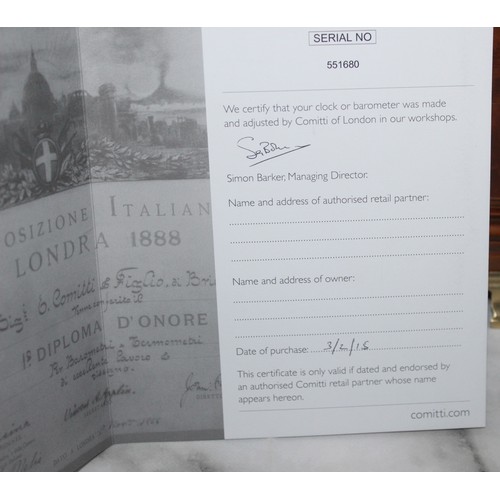 POSIZIONE ITALIAN
LONDRA 1888
1º DIPLOMA D'ONORE
SERIAL NO
551680
We certify that your clock or barometer was made
and adjusted by Comitti of London in our workshops.
Simon Barker, Managing Director.
Name and address of authorised retail partner:
Name and address of owner:
Date of purchase: 3/2/15
This certificate is only valid if dated and endorsed by
an authorised Comitti retail partner whose name
appears hereon.
comitti.com